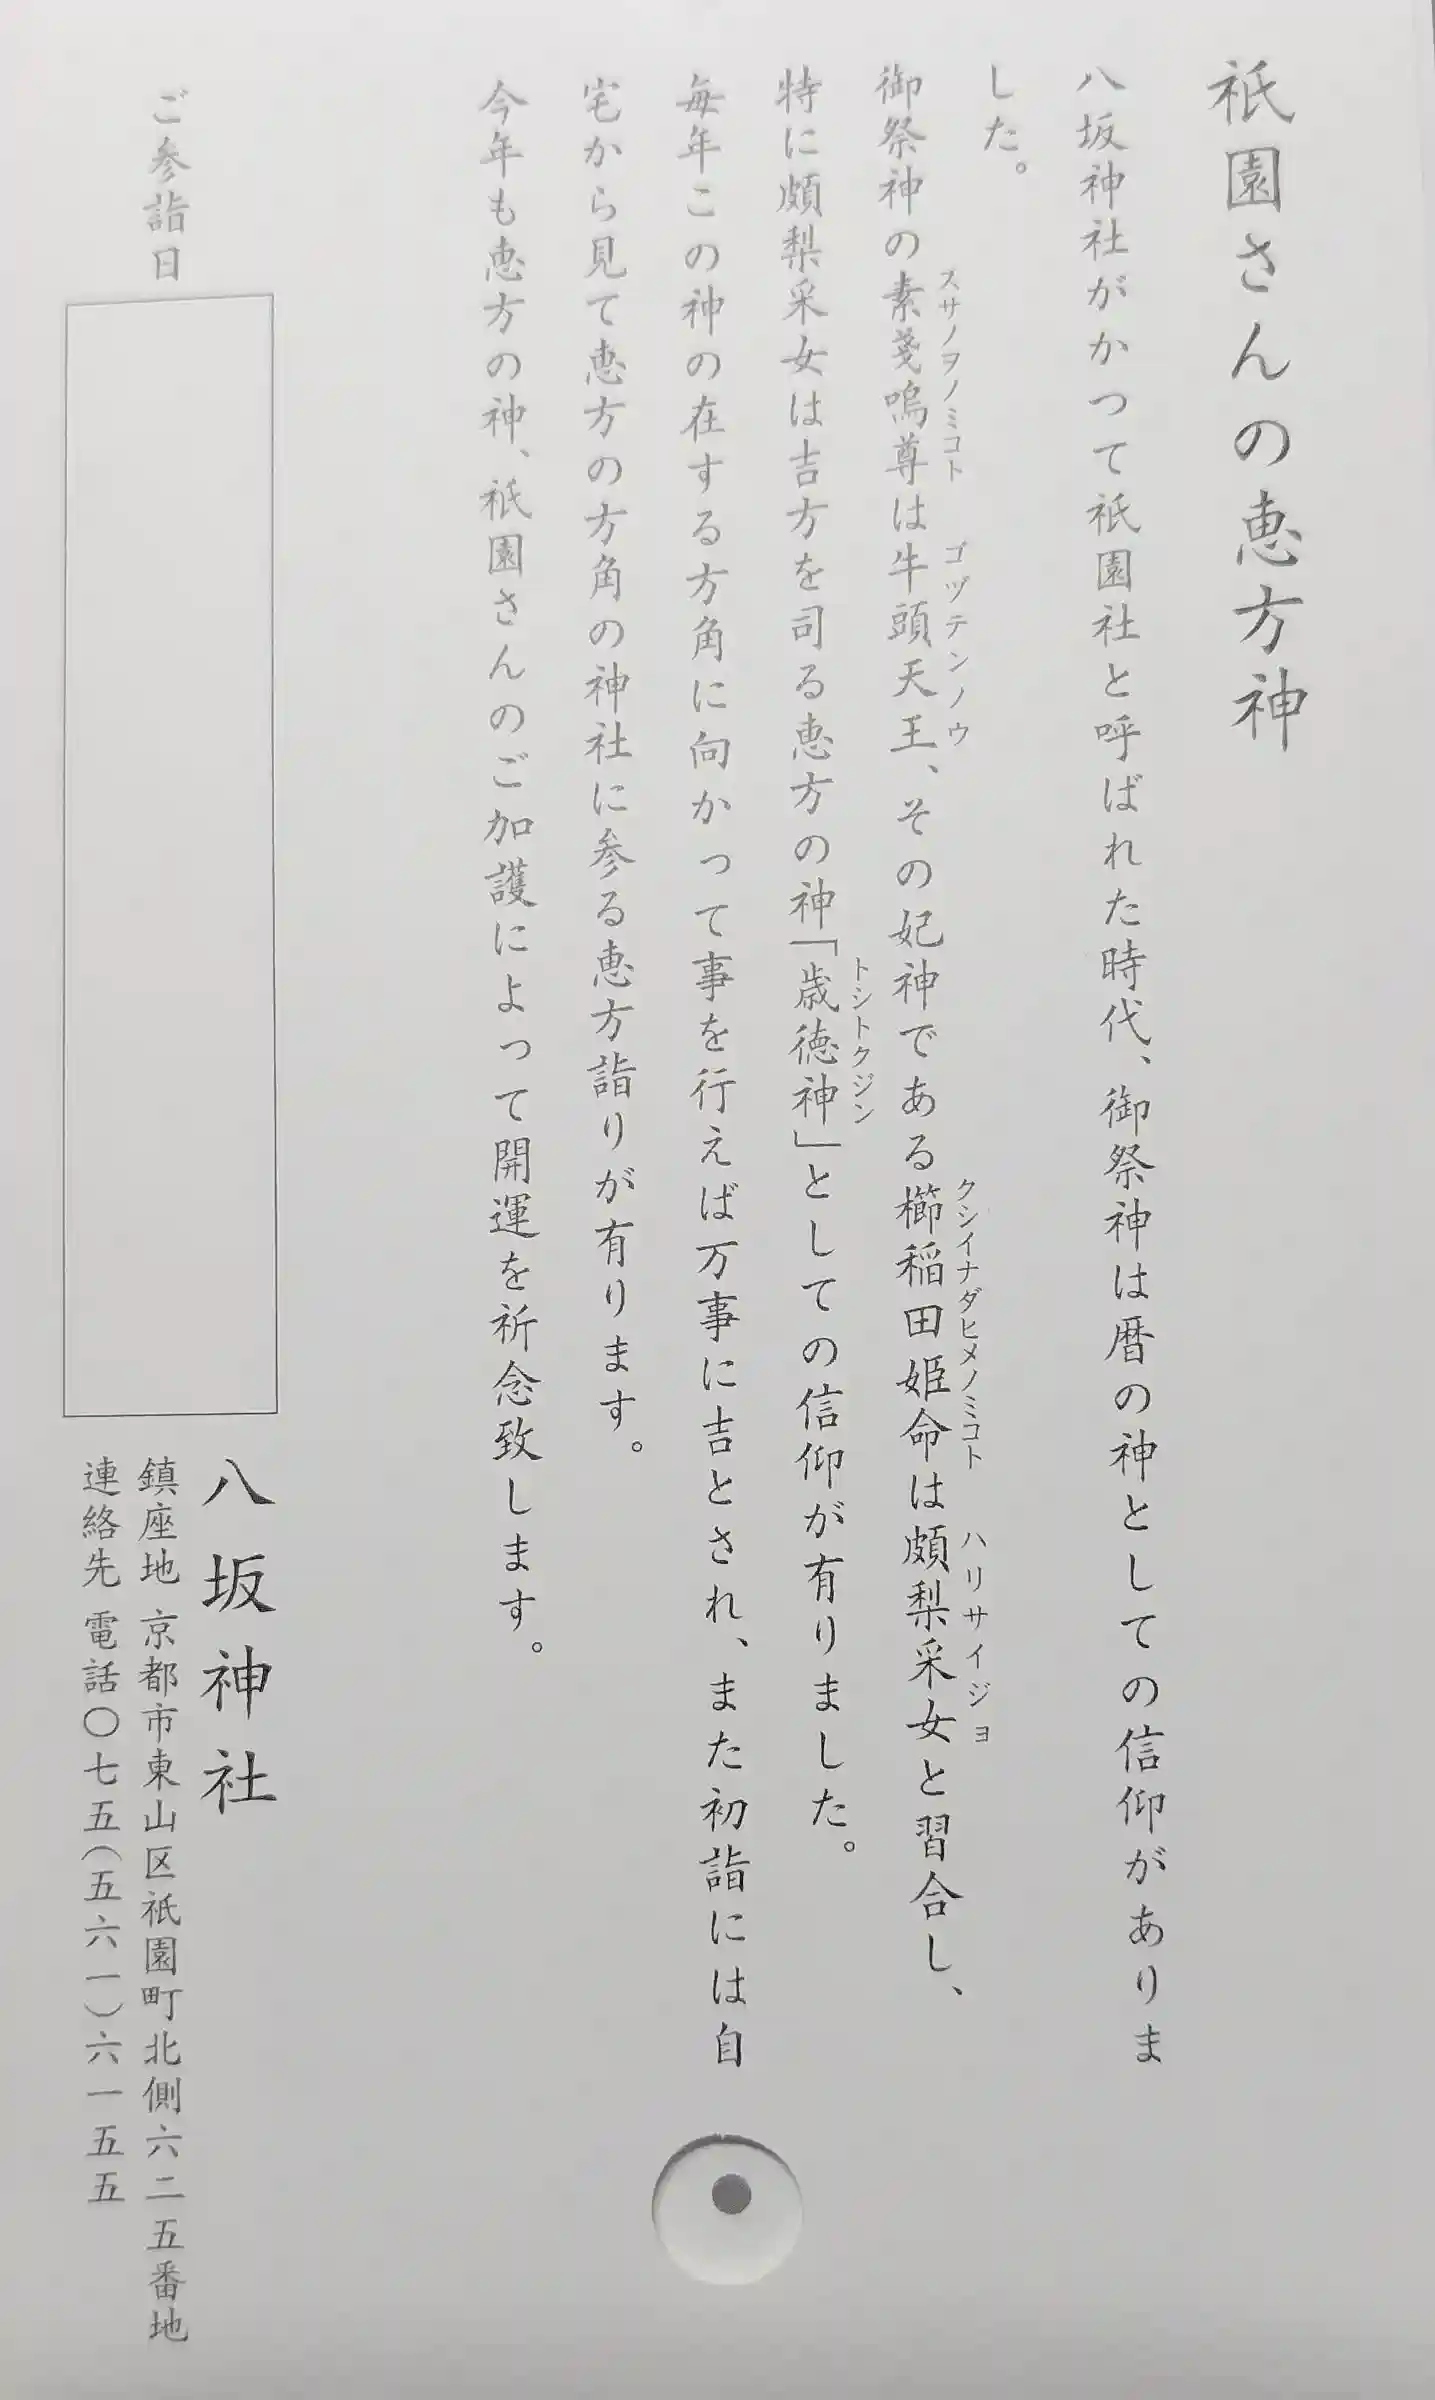 祇園さんの恵方神
八坂神社がかつて祇園社と呼ばれた時代、御祭神は暦の神としての信仰がありま
した。
御祭神の素戔嗚尊は牛頭天王、その妃神である櫛稲田姫命は頗梨采女と習合し、
スサノヲノミコト ゴヅテンノウ クシイナダヒメノミコト ハリサイジョ
特に頗梨采女は吉方を司る恵方の神「歳徳神」としての信仰が有りました。
トシトクジン
毎年この神の在する方角に向かって事を行えば万事に吉とされ、また初詣には自
宅から見て恵方の方角の神社に参る恵方詣りが有ります。
今年も恵方の神、祇園さんのご加護によって開運を祈念致します。
ご参詣日
八坂神社
鎮座地 京都市東山区祇園町北側六二五番地
連絡先 電話〇七五(五六一)六一五五